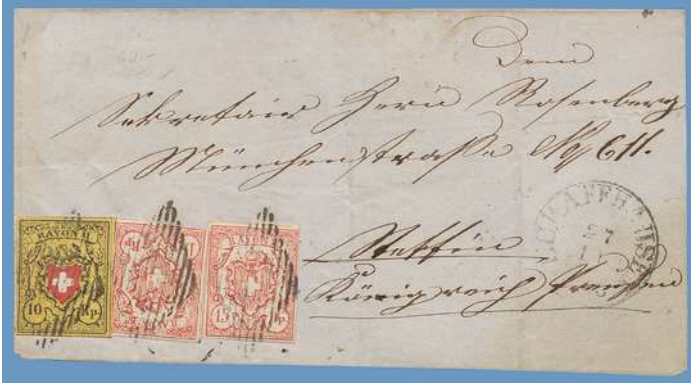 Dem
Sekretair Herrn Rosenberg
Münchenstraße No 611.
Stettin
Königreich Preußen
SCHAFFHAUSEN
RAYON II
10 Rp.
RAYON
15 Rp.